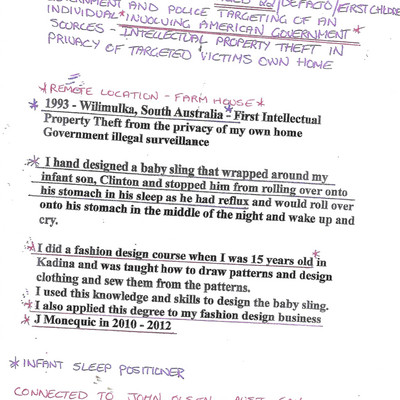 GOVERNMENT AND POLICE TARGETING OF AN
DEFACTO/FIRST CHILDREN
INDIVIDUAL *INVOLVING AMERICAN GOVERNMENT*
SOURCES - INTELLECTUAL PROPERTY THEFT IN
PRIVACY OF TARGETED VICTIMS OWN HOME
*REMOTE LOCATION - FARM HOUSE*
* 1993 - Wilimulka, South Australia * First Intellectual
Property Theft from the privacy of my own home
Government illegal surveillance
* I hand designed a baby sling that wrapped around my
infant son, Clinton and stopped him from rolling over onto
his stomach in his sleep as he had reflux and would roll over
onto his stomach in the middle of the night and wake up and
cry.
* I did a fashion design course when I was 15 years old in *
Kadina and was taught how to draw patterns and design
clothing and sew them from the patterns.
I used this knowledge and skills to design the baby sling.
* I also applied this degree to my fashion design business
* J Monequic in 2010 - 2012
* INFANT SLEEP POSITIONER
CONNECTED TO JOHN OLSEN